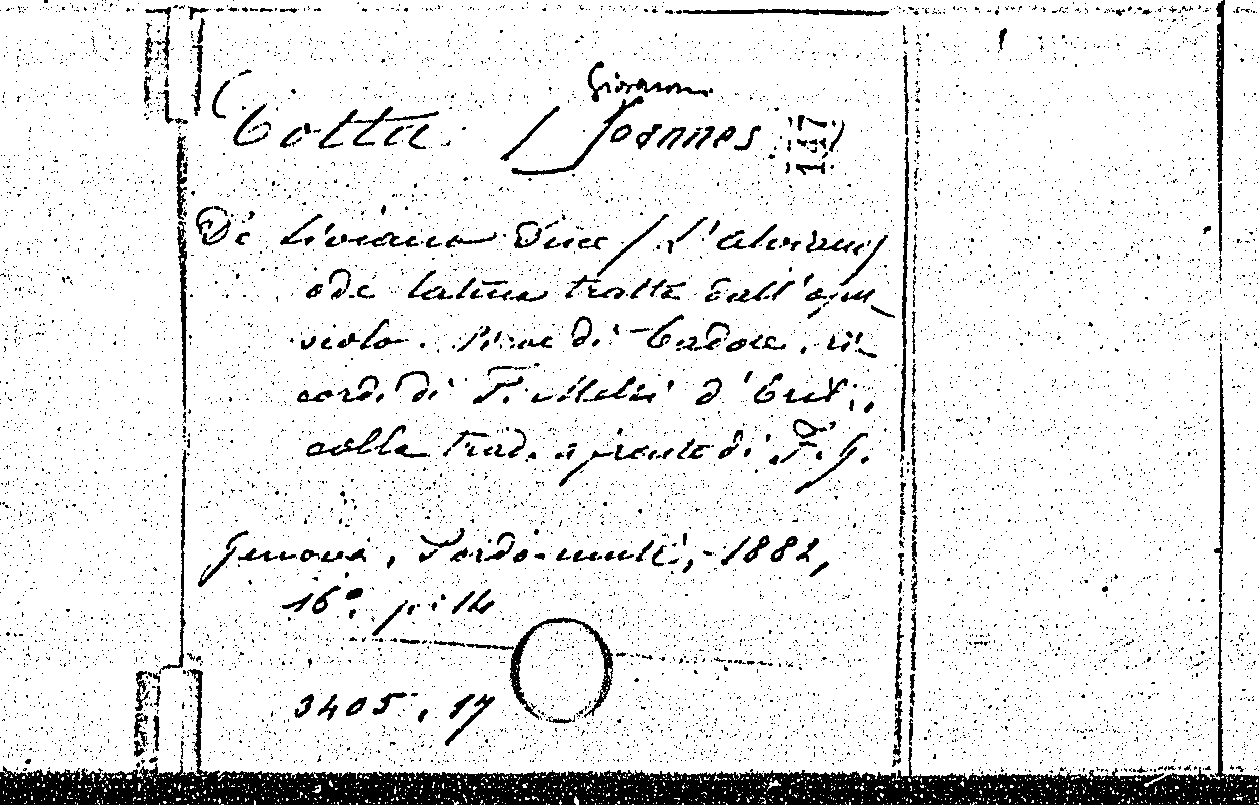 Giovanni
Cotta Joannes 147)
De Liviano Duce / L'Alviano /
ode latina tratta dall'opu-
scolo. Pieve di Cadore, ri-
cordi di F.
colla trad. a fronte di F. G.
Genova, Sordo-muti, 1882,
16º. p. 14
3405, 17